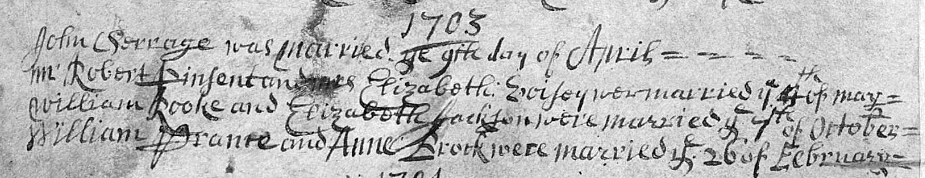 1703
John Cherrage was married ye 9th day of April = - - -
mr Robert Pinsent and mrs Elizabeth : Voisey wer married ye 4th of may =
William Cooke and Elizabeth Jackson were married ye 7th of October =
William Prance and Anne Brock were married ye : 26 of February -